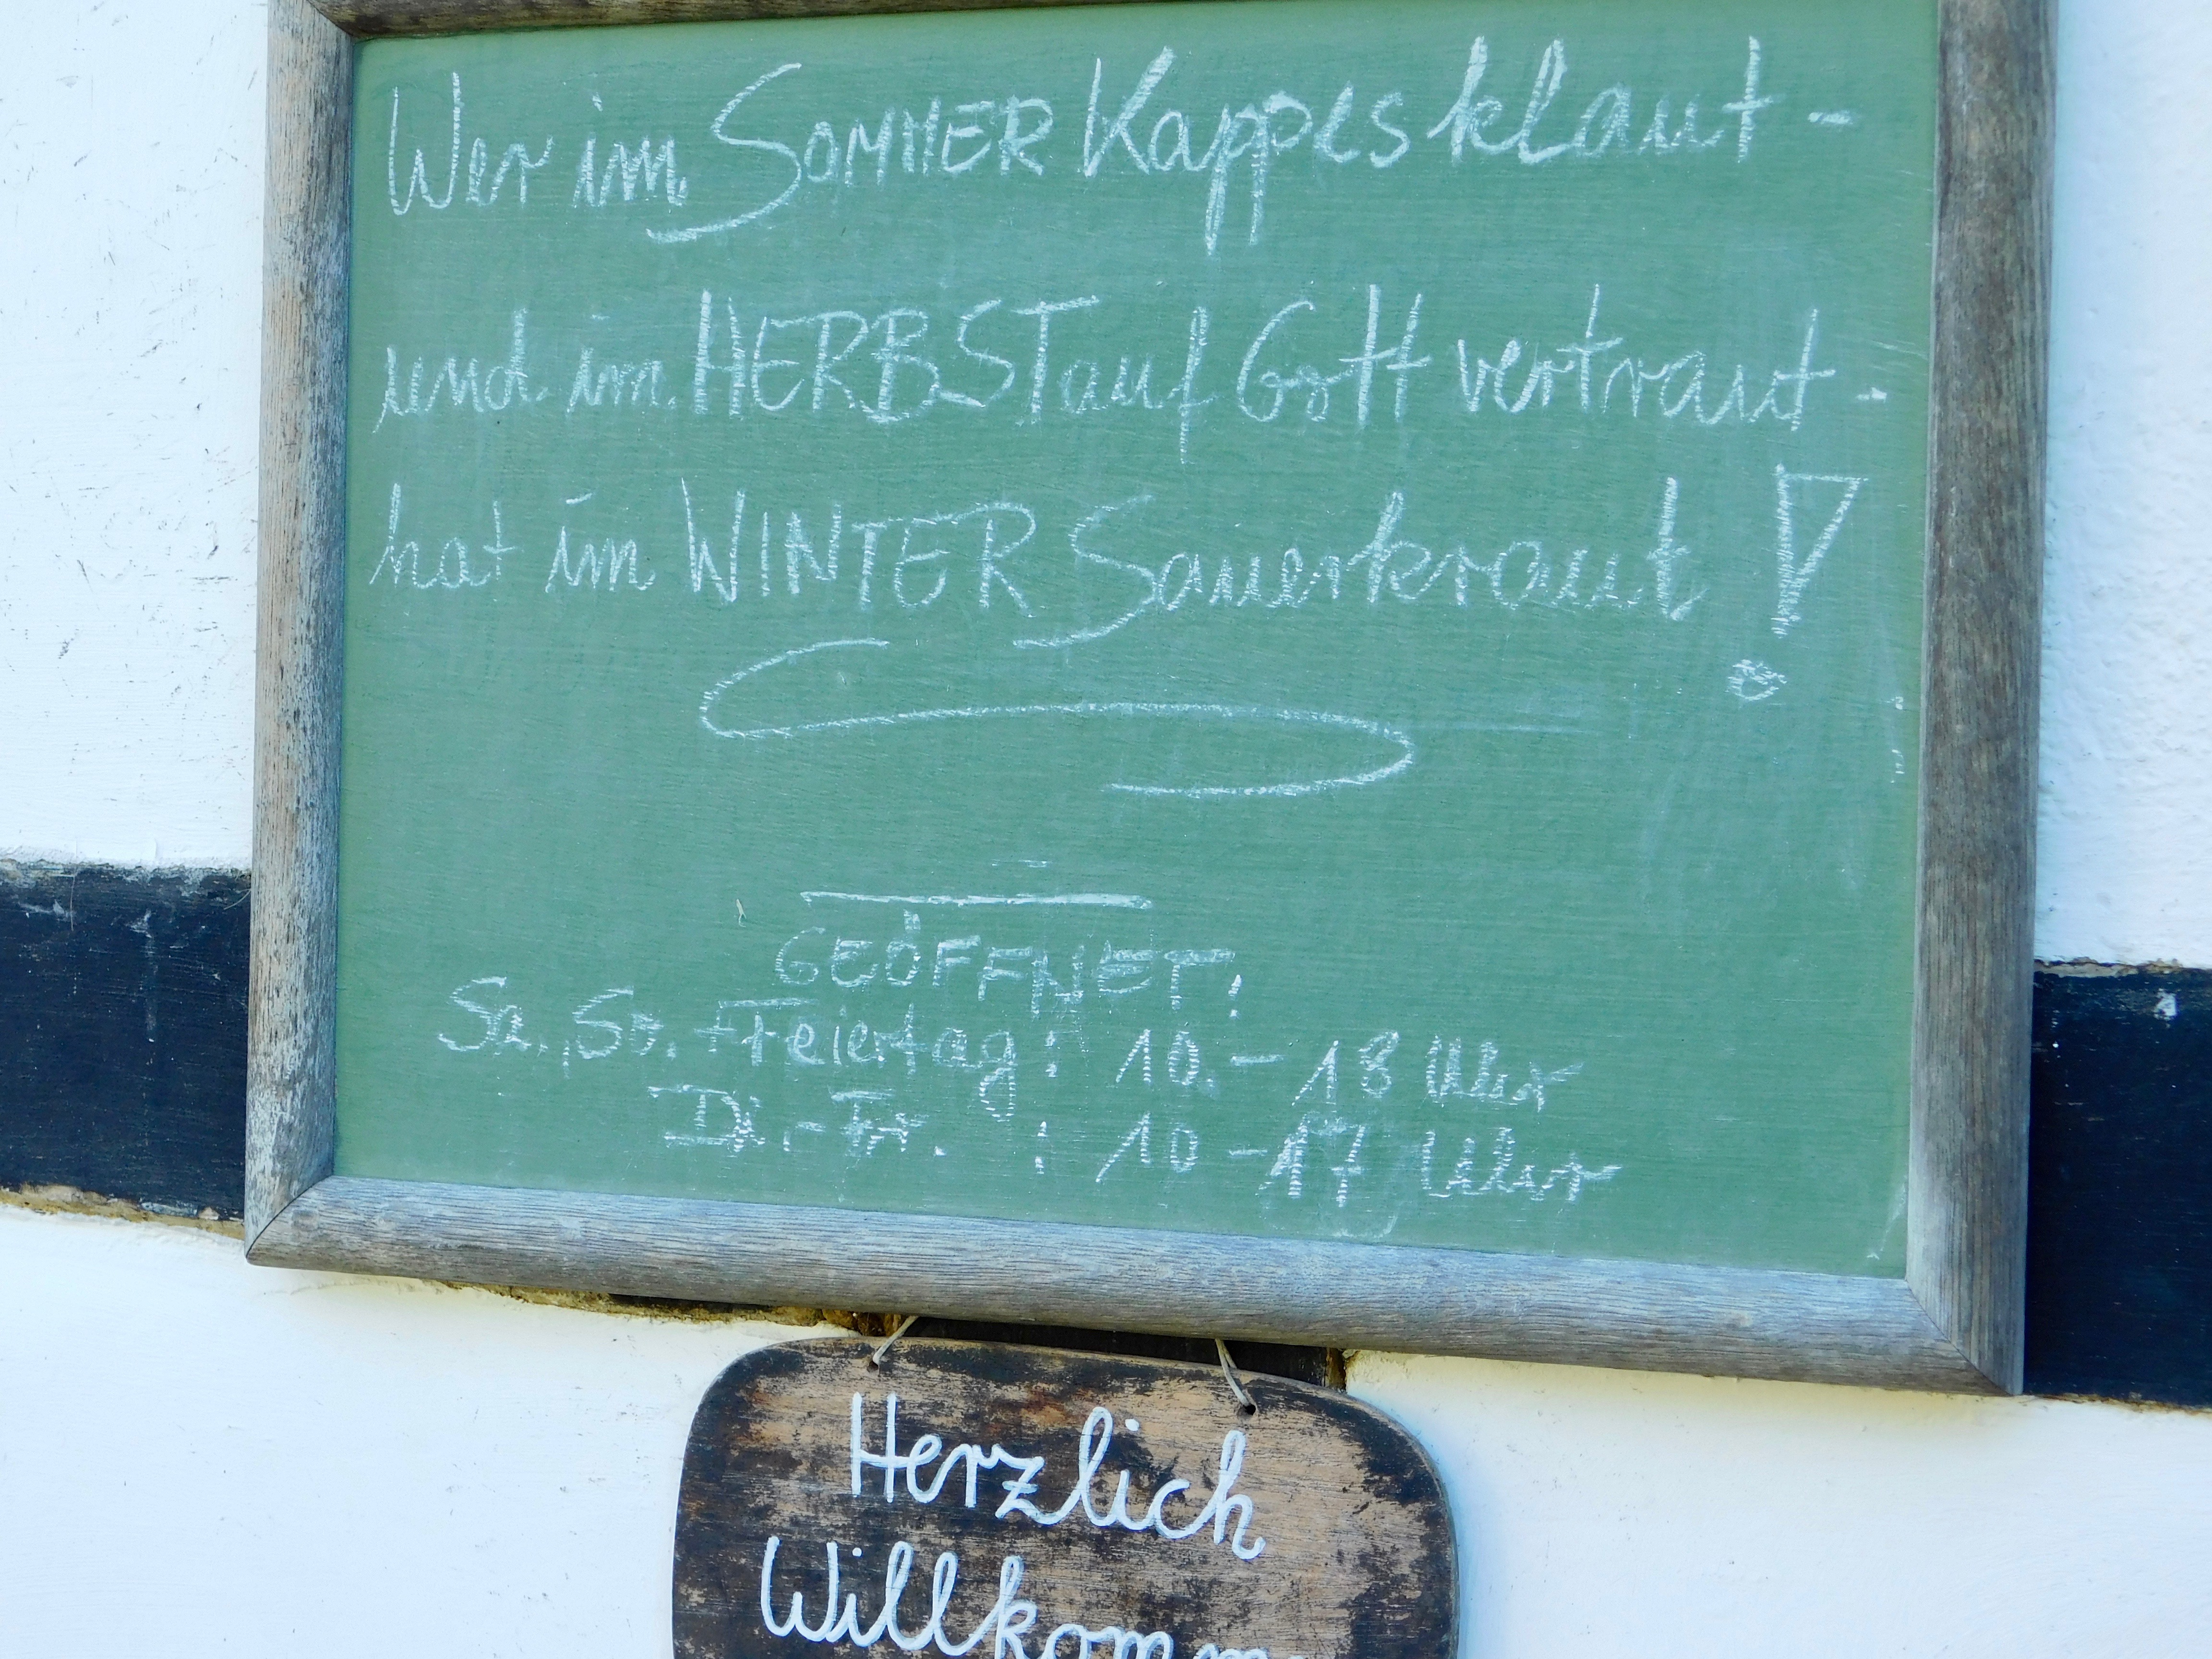 Wer im SOMMER Kappes klaut -
und im HERBST auf Gott vertraut -
hat im WINTER Sauerkraut!
GEÖFFNET:
Sa., So. + Feiertag: 10.- 18 Uhr
Di.- Fr. : 10 - 17 Uhr
Herzlich
Willkomm